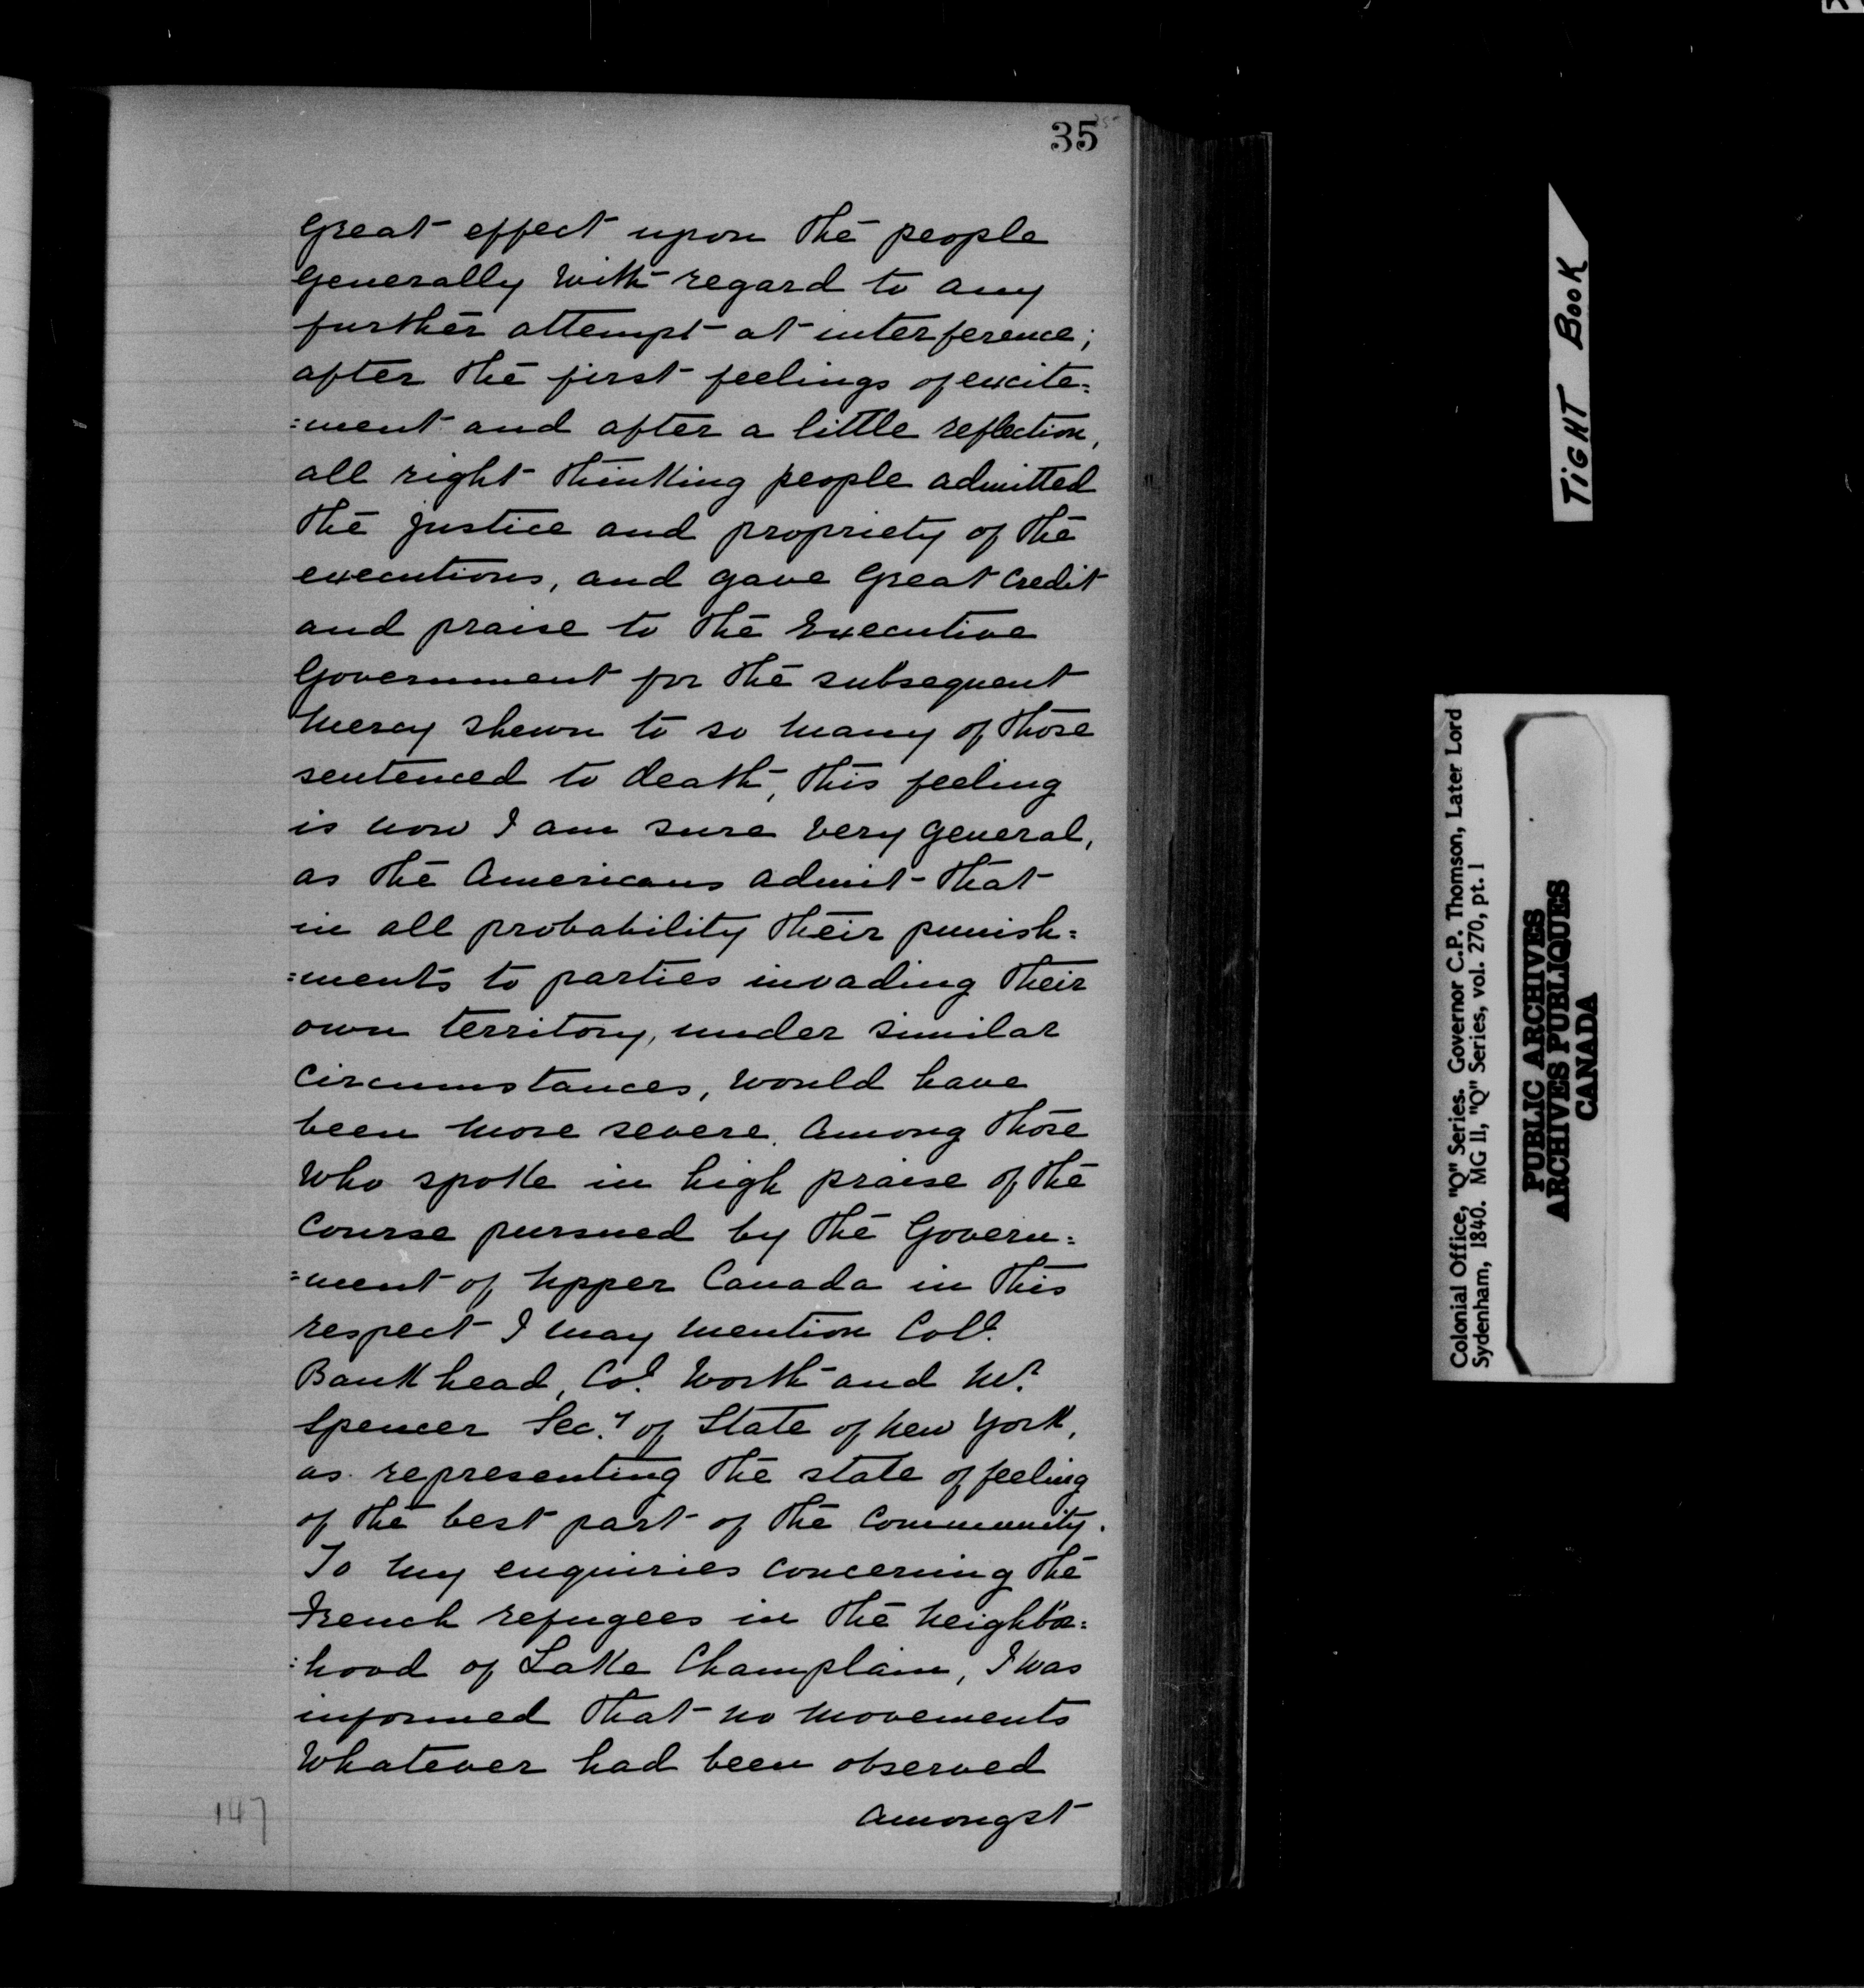 35
great effect upon the people
generally with regard to any
further attempt at interference;
after the first feelings of excite=
=ment and after a little reflection,
all right thinking people admitted
the justice and propriety of the
executions, and gave great credit
and praise to the Executive
Government for the subsequent
mercy shewn to so many of those
sentenced to death, this feeling
is now I am sure very general,
as the Americans admit that
in all probability their punish=
=ments to parties invading their
own territory, under similar
circumstances, would have
been more severe. Among those
who spoke in high praise of the
course pursued by the Govern=
=ment of Upper Canada in this
respect I may mention Coll.
Bankhead, Col. Worth and Mr.
Spencer Sec.y of State of New York,
as representing the state of feeling
of the best part of the community.
To my enquiries concerning the
French refugees in the neighbor=
=hood of Lake Champlain, I was
informed that no movements
whatever had been observed
amongst
147
TIGHT BOOK
Colonial Office, "Q" Series. Governor C.P. Thomson, Later Lord
Sydenham, 1840. MG 11, "Q" Series, vol. 270, pt. 1
PUBLIC ARCHIVES
ARCHIVES PUBLIQUES
CANADA